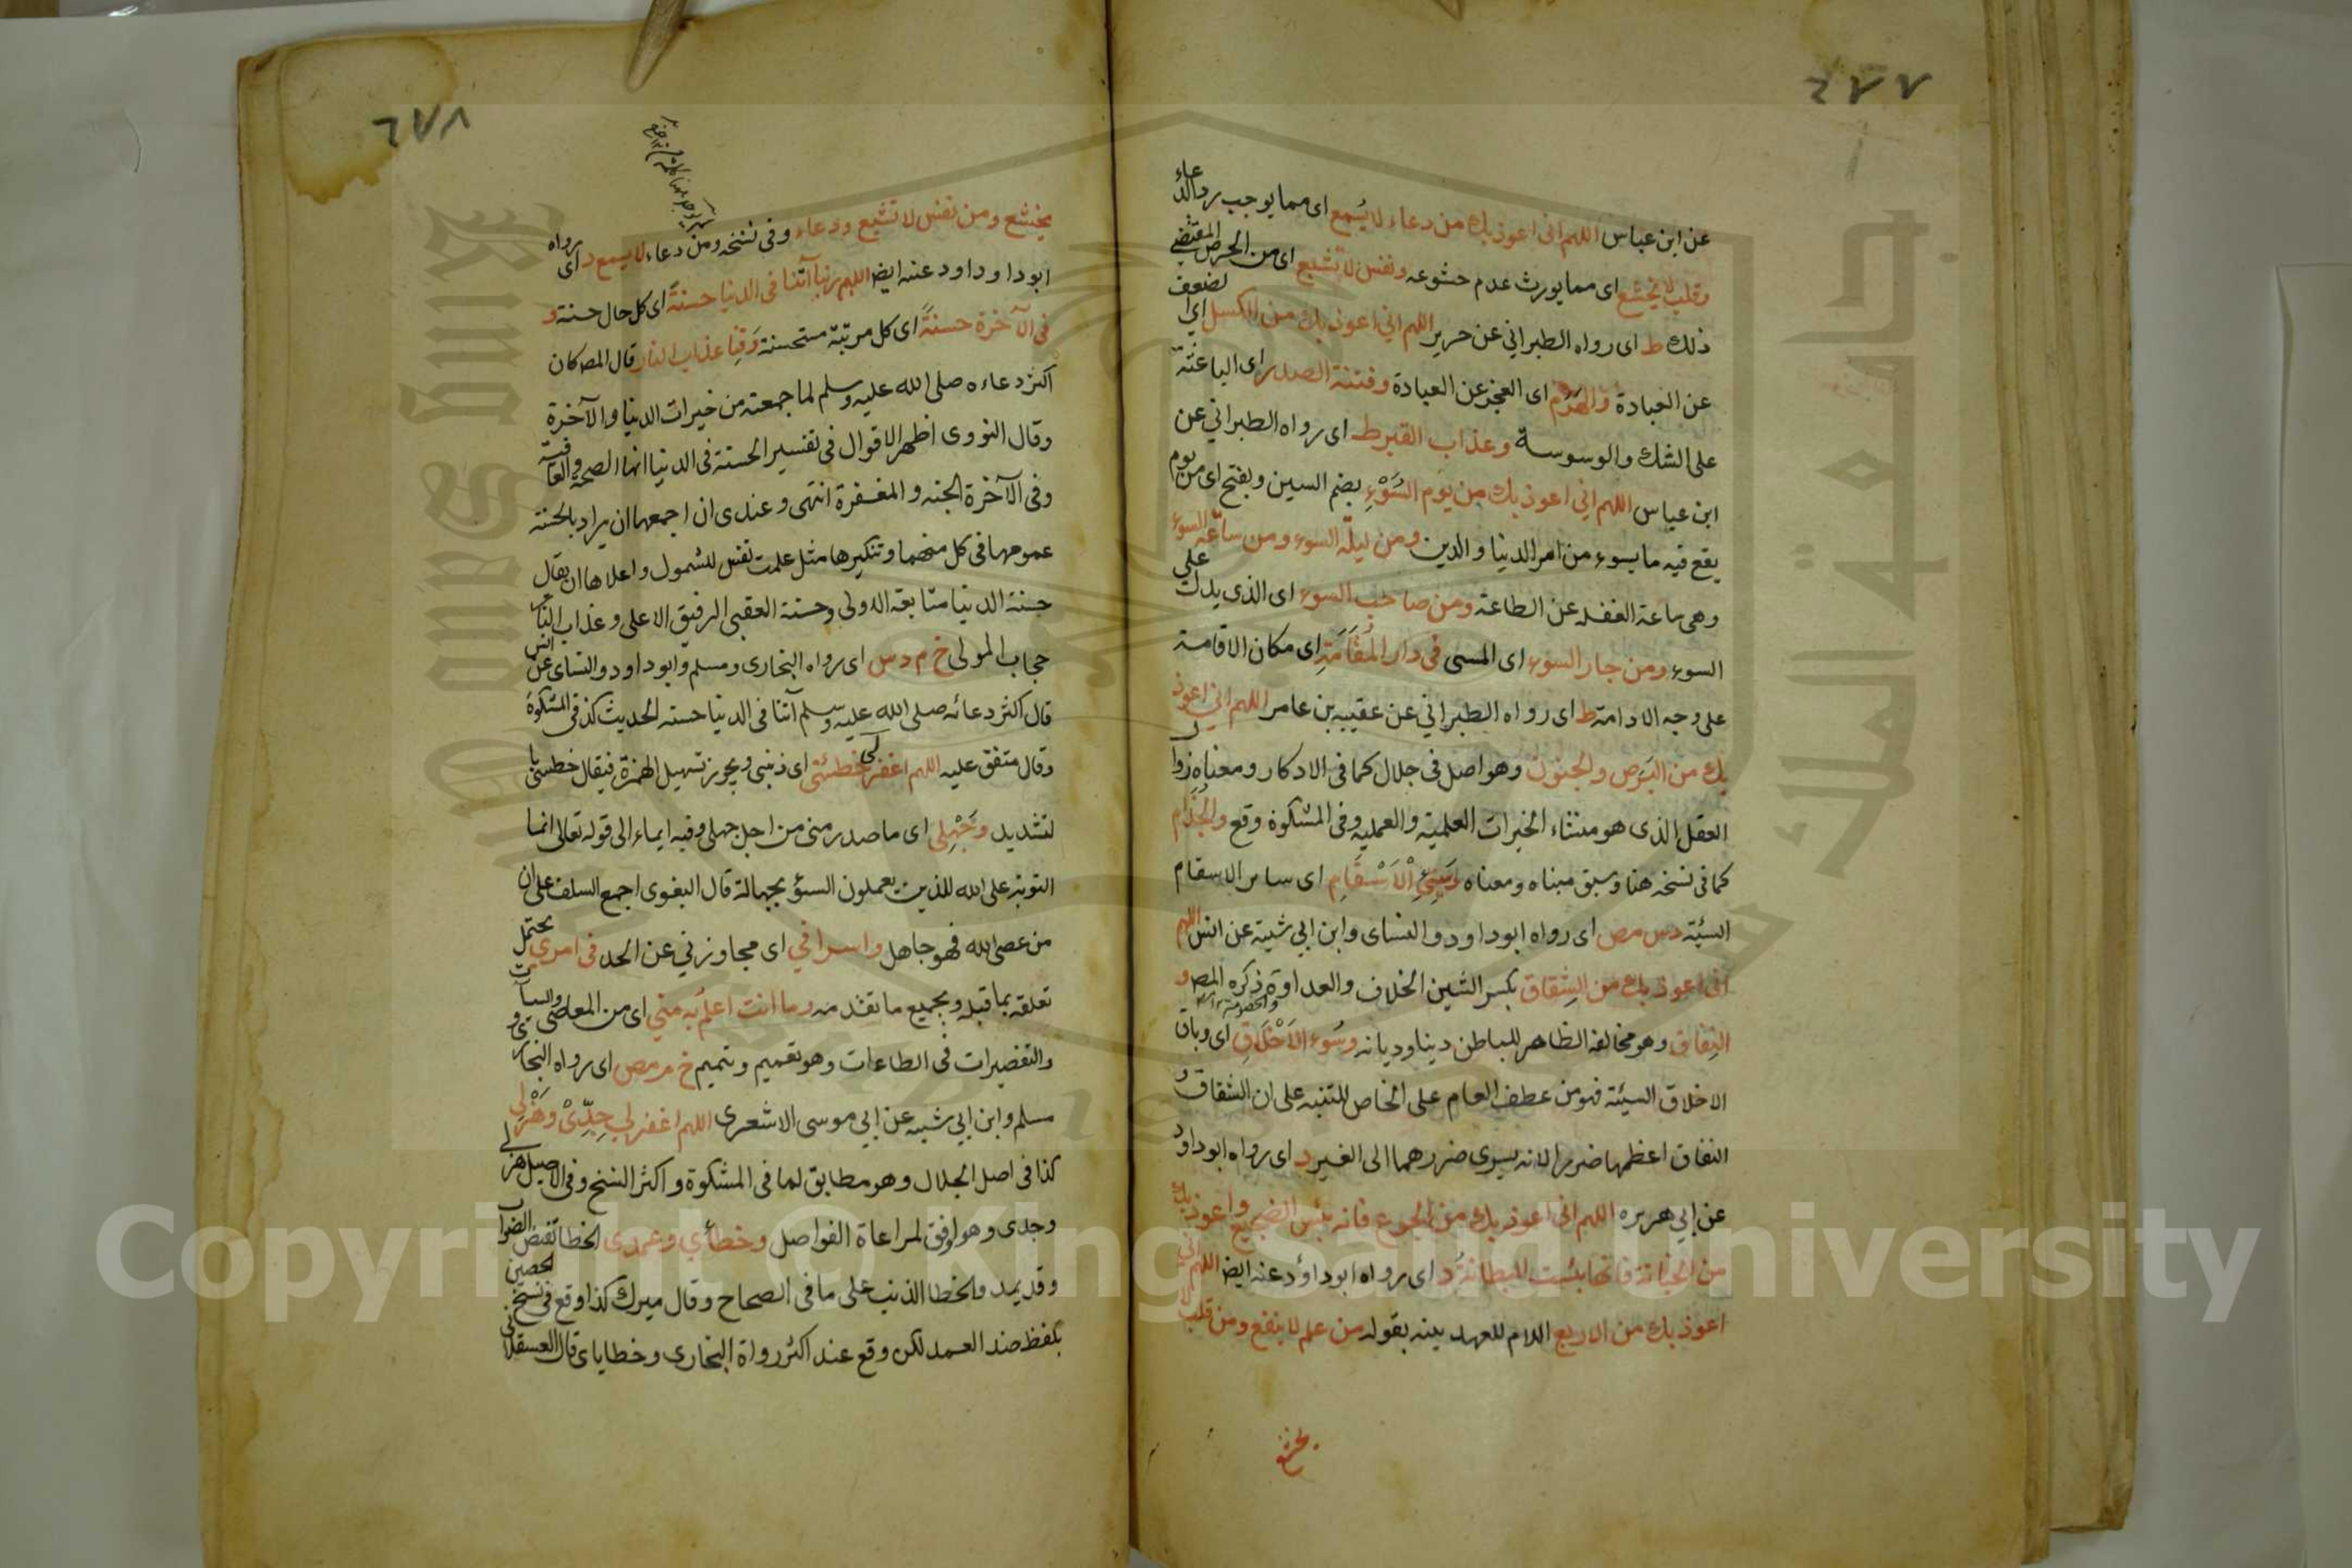 ٦٧٧
عن ابن عباس اللهم انى اعوذ بك من دعاء لا يُسمع اى مما يوجب رد الدعاء
وقلب لا يخشع اى مما يورث عدم خشوعه ونفس لا تشبع اى من الحرص المقتضي
ذلك ط اى رواه الطبراني عن جرير اللهم اني اعوذ بك من الكسل اي لضعف
عن العبادة والهرم اى العجز عن العبادة وفتنة الصدر اى الباعثة
على الشك والوسوسة وعذاب القبر ط اى رواه الطبراني عن
ابن عباس اللهم اني اعوذ بك من يوم السُّوْءِ بضم السين وبفتح اى من يوم
يقع فيه ما يسوء من امر الدنيا والدين ومن ليلة السوء ومن ساعة السوء
وهى ساعة الغفلة عن الطاعة ومن صاحب السوء اى الذى يدلك على
السوء ومن جار السوء اى المسى فى دار المُقَامَةِ اى مكان الاقامة
على وجه الادامة ط اى رواه الطبراني عن عقبة بن عامر اللهم اني اعوذ
بك من البَرَص والجنون وهو اصل فى جلال كما فى الاذكار ومعناه زوال
العقل الذى هو منشاء الخيرات العلمية والعملية وفى المشكوة وقع والجُذَام
كما فى نسخة هنا وسبق مبناه ومعناه وَسَيِّئِ الْاَسْقَامِ اى سائر الاسقام
السيّة دس مص اى رواه ابو داود والنساى وابن ابي شيبة عن انس اللهم
انى اعوذ بك من الشِقاق بكسر الشين الخلاف والعداوة ذكره المص و
والخصومة
النِفاق وهو مخالفة الظاهر للباطن دينا وديانه وسُوء الأَخْلَاقِ اى وباق
الاخلاق السيئة فهو من عطف العام على الخاص للتنبه على ان الشقاق و
النفاق اعظمها ضررا لانه يسرى ضررهما الى الغير د اى رواه ابو داود
عن ابي هريره اللهم انى اعوذ بك من الجوع فانه بئس الضجيع واعوذ بك
من الخيانة فانها بئست البطانة د اى رواه ابو داؤد عنه ايضا اللهم انى
اعوذ بك من الاربع اللام للعهد بينه بقوله من علم لا ينفع ومن قلب لا
يخشع
٦٧٨
يخشع ومن نفس لا تشبع ودعاء وفى نسخه ومن دعاء لا يسمع د اى رواه
ابو داود عنه ايضا اللهم ربنا آتنا فى الدنيا حسنةً اى كل حال حسنة و
فى الآخرة حسنةً اى كل مرتبة مستحسنة وَقِنا عذاب النار قال المص كان
اكثر دعاءه صلى الله عليه وسلم لما جمعته من خيرات الدنيا والآخرة
وقال النووى اظهر الاقوال فى تفسير الحسنة فى الدنيا انها الصحة والعافية
وفى الآخرة الجنة والمغفرة انتهى وعندى ان اجمعها ان يراد بالحسنة
عمومها فى كل منهما وتنكيرها مثل علمت نفس للشمول واعلاها ان يقال
حسنة الدنيا متابعة المولى وحسنة العقبى الرفيق الاعلى وعذاب النار
حجاب المولى خ م د س اى رواه البخارى ومسلم وابو داود والنساى عن انس
قال اكثر دعائه صلى الله عليه وسلم آتنا فى الدنيا حسنه الحديث كذ فى المشكوة
وقال متفق عليه اللهم اغفر لى خطيئتى اى ذنبى ويجوز تسهيل الهمزة فيقال خطيتى با
لتشديد وَجَهْلِى اى ما صدر منى من اجل جهلى وفيه ايماء الى قوله تعالى انما
التوبة على الله للذين يعملون السوٓء بجهالة قال البغوى اجمع السلف على ان
من عصى الله فهو جاهل واسرافي اى مجاوزتي عن الحد فى امرى يحتمل
تعلقه بما قبله وبجميع ما تقدمه وما انت اعلم به مني اى من المعاصى والسيآت
والتقصيرات فى الطاعات وهو تعميم وتتميم خ م مص اى رواه البخارى و
مسلم وابن ابي شيبه عن ابي موسى الاشعرى اللهم اغفر لي جِدِّىْ وهَزْلِى
كذا فى اصل الجلال وهو مطابق لما فى المشكوة واكثر النسخ وفى الاصيل هزلى
وجدى وهو اوفق لمراعاة الفواصل وخطأي وعمدى الخطا نقيض الصواب
وقد يمد والخطا الذنب على ما فى الصحاح وقال ميرك كذا وقع فى نسخ الحصين
بلفظ ضد العمد لكن وقع عند اكثر رواة البخارى وخطاياى قال العسقلانى